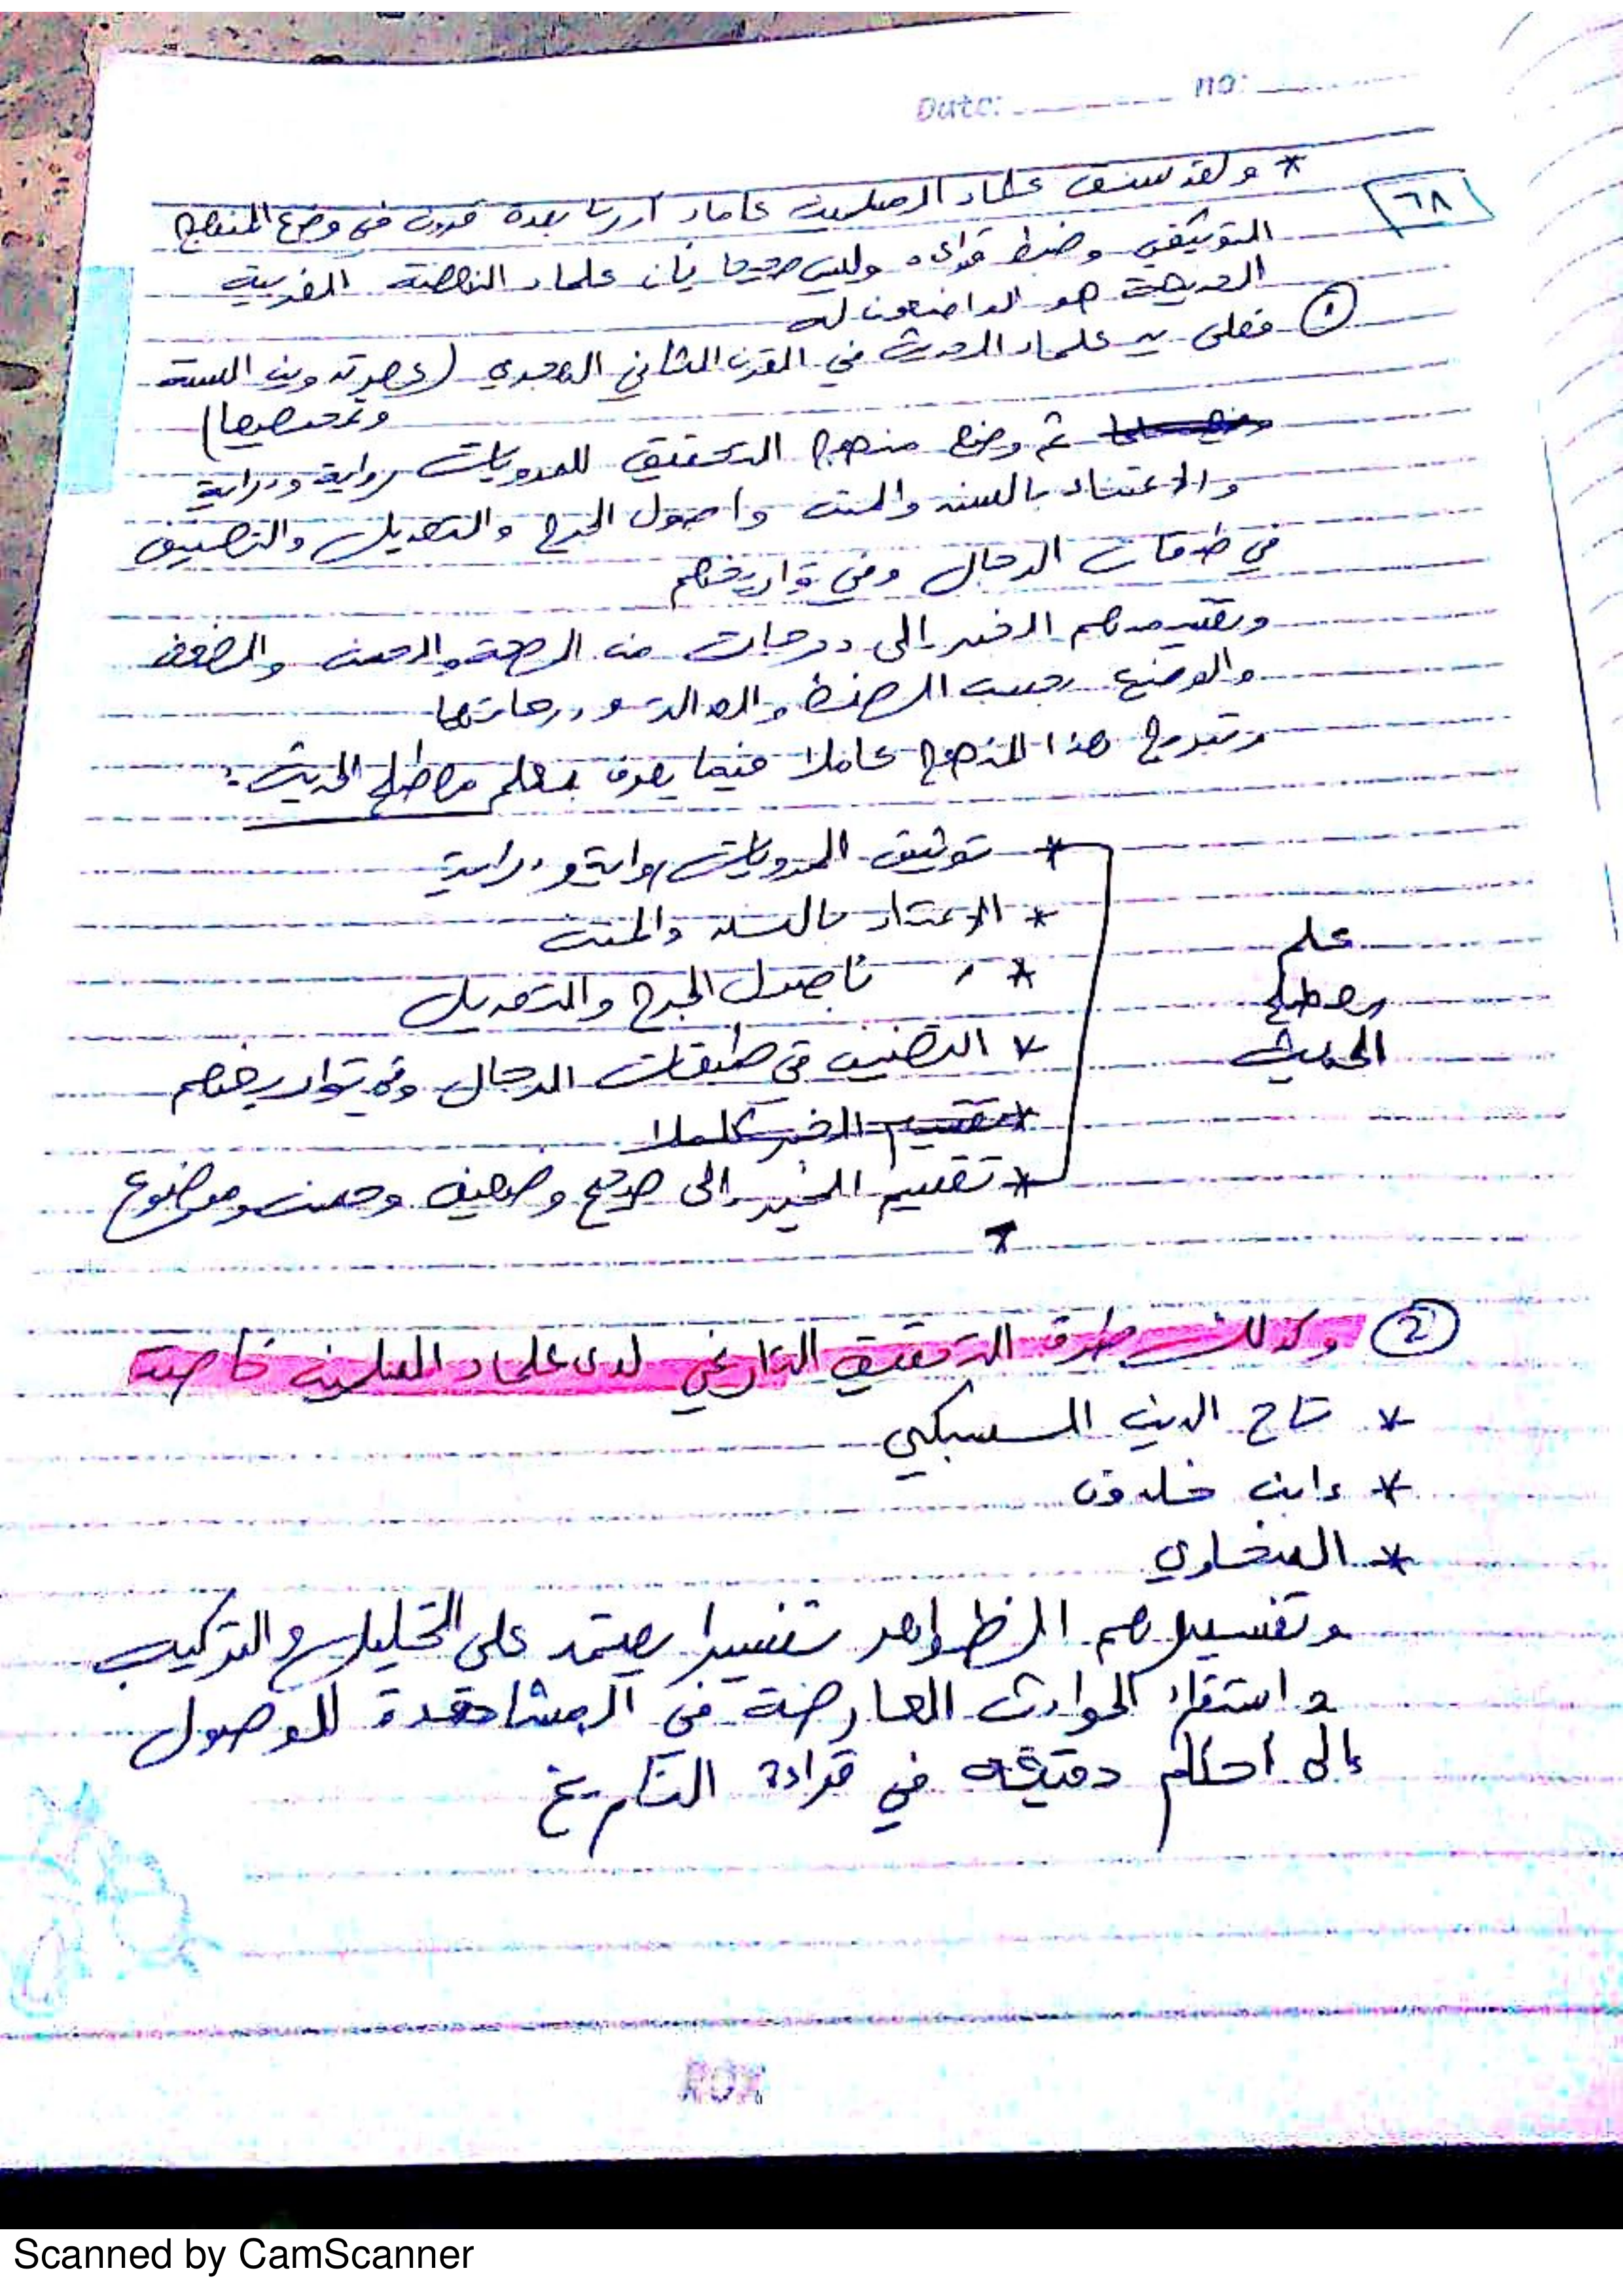 Date: no:
٦٨
* ولقد سبق علماء المسلمين علماء أوربا بعدة قرون في وضع المنهج
التوثيقي وضبط قواعده وليس صحيحا بأن علماء النهضة الغربية
الحديثة هم الواضعون له
① فعلى يد علماء الحديث في القرن الثاني الهجري (عصر تدوين السنة
وتمحيصها)
ثم وضع منهج التحقيق للمرويات رواية ودراية
والاعتناء بالسند والمتن واصول الجرح والتعديل والتصنيف
في طبقات الرجال وفي تواريخهم
وتقسيمهم الخبر إلى درجات من الصحة والحسن والضعف
والوضع بحسب الحفظ والعدالة ودرجاتها
ويندرج هذا المنهج كاملا فيما يعرف بعلم مصطلح الحديث:
علم
مصطلح
الحديث
* توثيق المرويات رواية ودراية
* الاعتناء بالسند والمتن
* بأصول الجرح والتعديل
* التصنيف في طبقات الرجال وفي تواريخهم
* تقسيم الخبر كاملا
* تقسيم الخبر إلى صحيح وضعيف وحسن وموضوع
② وكذلك طرق التحقيق التاريخي لدى علماء المسلمين خاصة
* تاج الدين السبكي
* وابن خلدون
* السخاوي
وتفسيرهم الظواهر تفسيرا يعتمد على التحليل والتركيب
واستقراء الحوادث العارضة في المشاهدة للوصول
إلى احكام دقيقه في قراءة التاريخ
Scanned by CamScanner